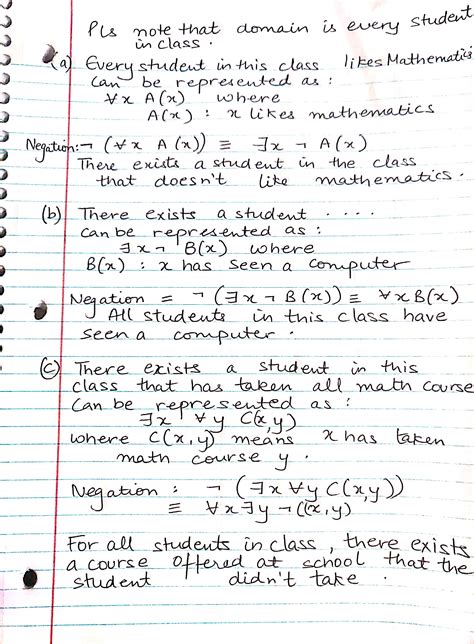 Pls note that domain is every student
in class.
(a) Every student in this class likes Mathematics
Can be represented as :
∀x A(x) where
A(x) : x likes mathematics
Negation: ¬ (∀x A(x)) ≡ ∃x ¬ A(x)
There exists a student in the class
that doesn't like mathematics.
(b) There exists a student ....
can be represented as :
∃x ¬ B(x) where
B(x) : x has seen a computer
Negation = ¬ (∃x ¬ B(x)) ≡ ∀x B(x)
All students in this class have
seen a computer.
(c) There exists a student in this
class that has taken all math course
Can be represented as :
∃x ∀y C(x,y)
where C(x,y) means x has taken
math course y.
Negation : ¬ (∃x ∀y C(x,y))
≡ ∀x ∃y ¬C(x,y)
For all students in class, there exists
a course offered at school that the
student didn't take.